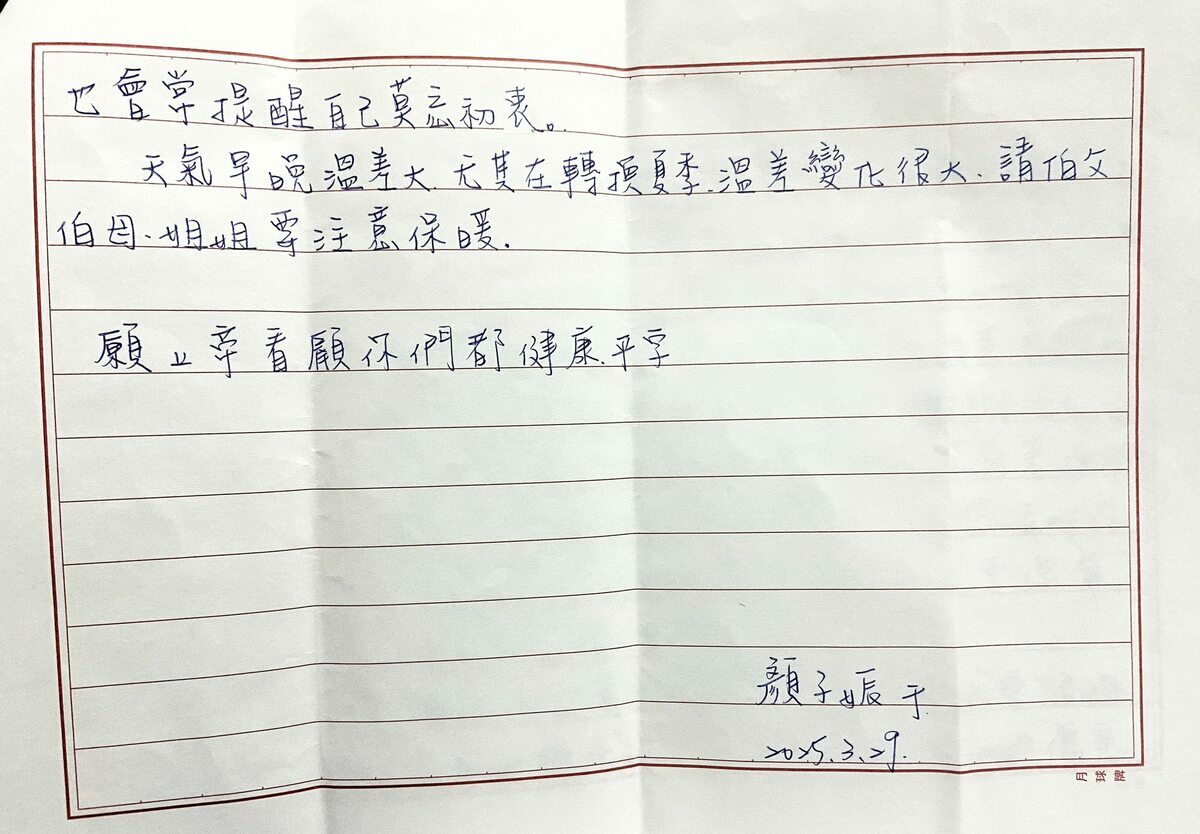 也會常提醒自己莫忘初衷。
天氣早晚溫差大.尤其在轉換夏季.溫差變化很大.請伯父
伯母.姐姐要注意保暖.
願上帝看顧你們都健康.平安
顏子娠于
2025.3.29.
月球牌